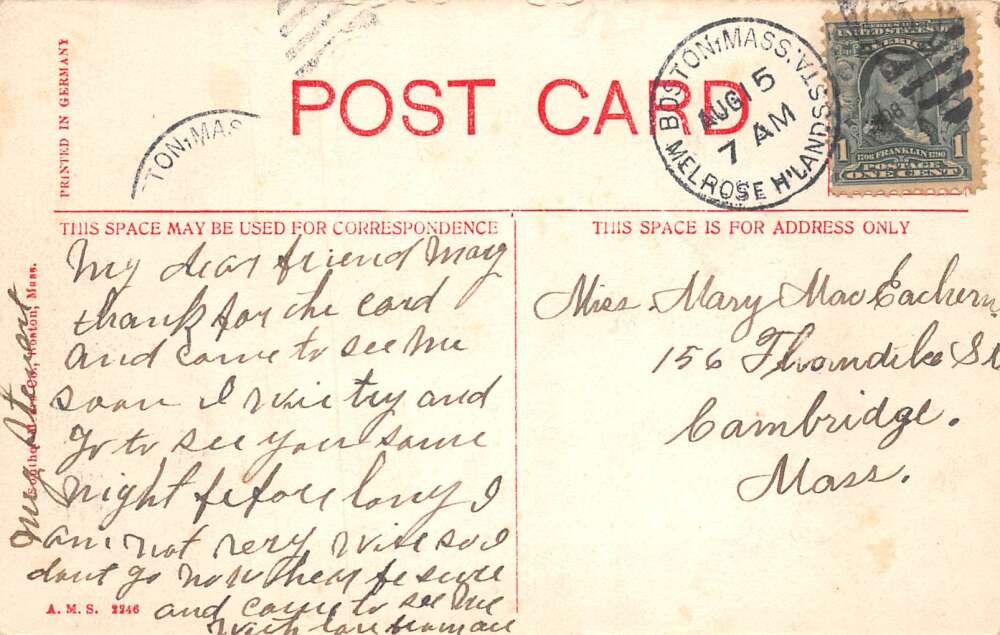 PRINTED IN GERMANY
TON, MAS
POST CARD
BOSTON, MASS. STA.
AUG 15
7 AM
MELROSE H'LANDS
UNITED STATES OF
AMERICA
1 1706 FRANKLIN 1790 1
POSTAGE
ONE CENT
THIS SPACE MAY BE USED FOR CORRESPONDENCE
THIS SPACE IS FOR ADDRESS ONLY
My dear friend May
thank for the card
and come to see me
soon I will try and
go to see you some
night before long I
am not very well so I
dont go now here be sure
and come to see me
with love from all
Stewart
Co., Boston, Mass.
A. M. S. 2246
Miss. Mary MacEachern
156 Thorndike St
Cambridge.
Mass.